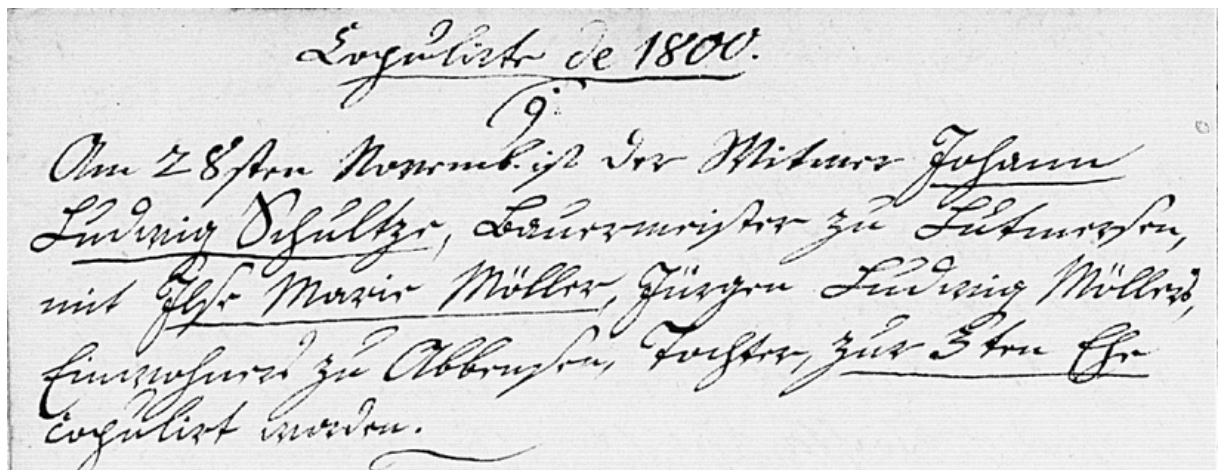 Copulirte de 1800.
9.
Am 28sten Novemb. ist der Witwer Johann
Ludwig Schultze, Bauermeister zu Lutmersen,
mit Ilse Marie Möller, Jürgen Ludwig Möllers,
Einwohners zu Abbensen, Tochter, zur 3ten Ehe
copulirt worden.